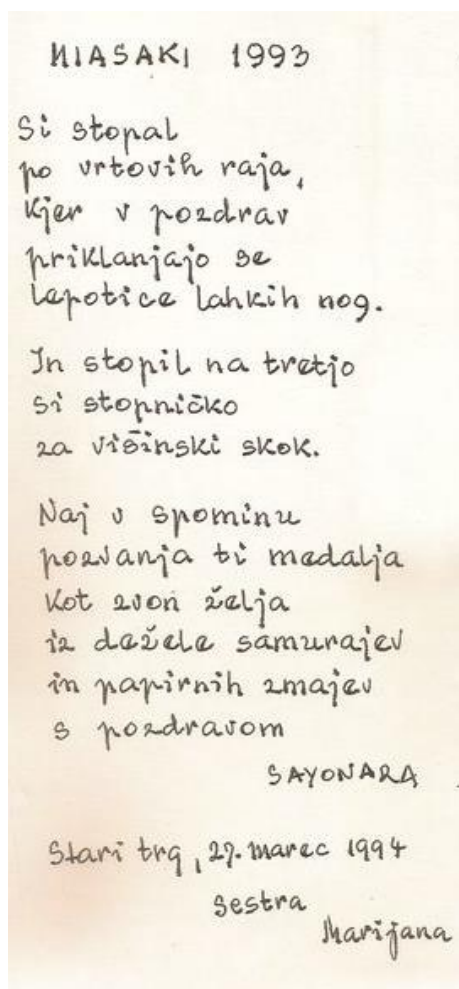 MIASAKI 1993
Si stopal
po vrtovih raja,
kjer v pozdrav
priklanjajo se
lepotice lahkih nog.
In stopil na tretjo
si stopničko
za višinski skok.
Naj v spominu
pozvanja ti medalja
kot zvon želja
iz dežele samurajev
in papirnih zmajev
s pozdravom
SAYONARA
Stari trg, 27. marec 1994
sestra
Marijana